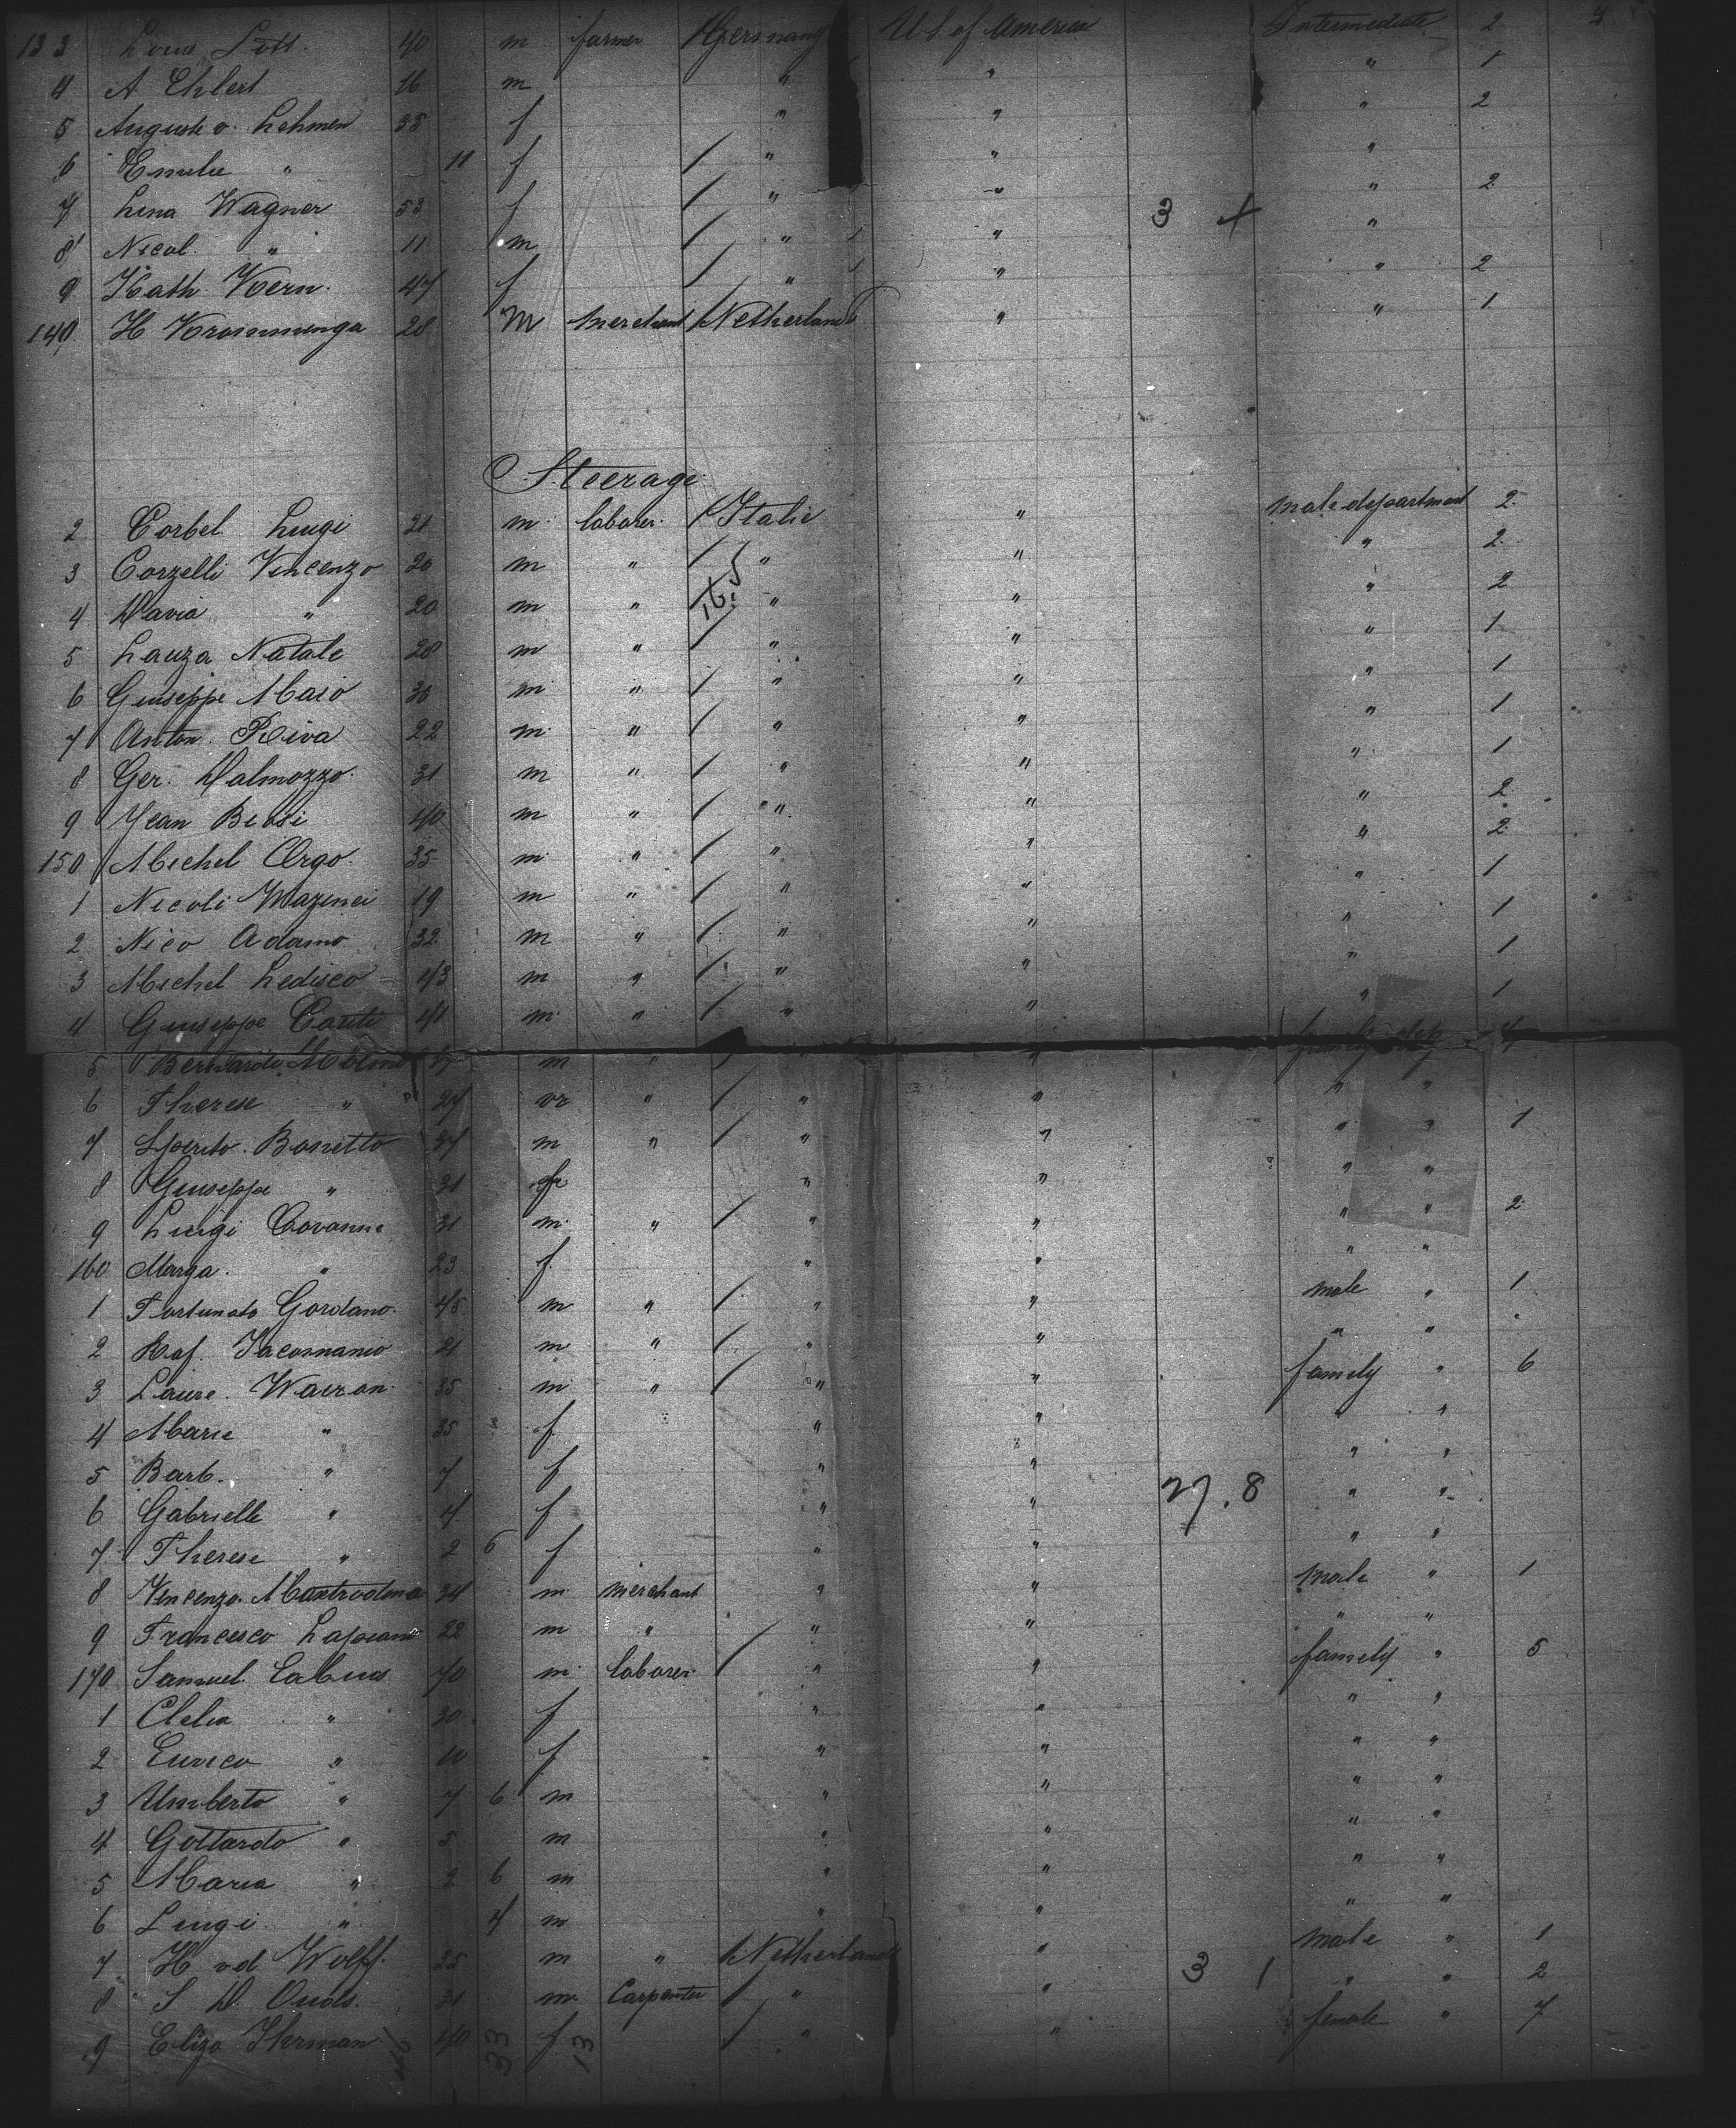 133 Louis Lott. 40 m farmer Germany U S of America Intermediate 2
4 A Ehlert 16 m " " " 1
5 Auguste v. Lehmen 35 f " " " 2
6 Emilie " 11 f / " " "
7 Lina Wagner 53 f / " " 3 + " 2
8 Nicol. " 11 m / " " "
9 Kath Kern. 47 f / " " " 2
140 H Krommenga 28 m merchant Netherland " " 1
Steerage
2 Corbel Luigi 21 m laborer Italie " male department 2
3 Corzelli Vincenzo 20 m " / " " " 2
4 Davia " 20 m " / " " " 2
5 Lauza Natale 28 m " / " " " 1
6 Giuseppe Maio 36 m " / " " " 1
7 Anton Reiva 22 m " / " " " 1
8 Ger. Dalmozzo 31 m " / " " " 1
9 Jean Biosi 40 m " / " " " 2
150 Michel Orgo 35 m " / " " " 2
1 Nicoli Mazinei 19 m " / " " " 1
2 Nico Adamo 32 m " / " " " 1
3 Michel Ledisco 43 m " / " " " 1
4 Giuseppe Conti 41 m " / " " " 1
5 Bernardi m " / " " family
6 Therese " 27 " / " " " "
7 Bonetto 37 m " / " " " " 1
8 Giuseppe " 21 " " " "
9 Luigi Covanne 31 m " / " " " " 2
160 Marga. " 23 f " " " "
1 Fortunato Gordano 45 m " / " " male " 1
2 Raf. Jacomanio 21 m " / " " " " "
3 Laure. Wairan 35 m " / " " family " 6
4 Marie " 35 f " " " "
5 Barb. " 7 f " " " "
6 Gabrielle " 4 f " " 27.8 " "
7 Therese " 2 6 f " " " "
8 Vincenzo 34 m merchant " " male " 1
9 Francesco 22 m " " " " "
170 Samuel 40 m laborer / " " family " 5
1 Clelia " 30 f " " " "
2 Eurico " 10 f " " " "
3 Umberto " 7 6 m " " " "
4 Gottardo " 5 m " " " "
5 Maria " 2 6 m " " " "
6 Luigi " 4 m " " " "
7 H vd Wolff. 25 m " Netherland " male " 1
8 S D. Ouds. 31 m Carpenter / " " 3 1 " " 2
9 Eliza Therman 40 f / " " female " 7
33 13